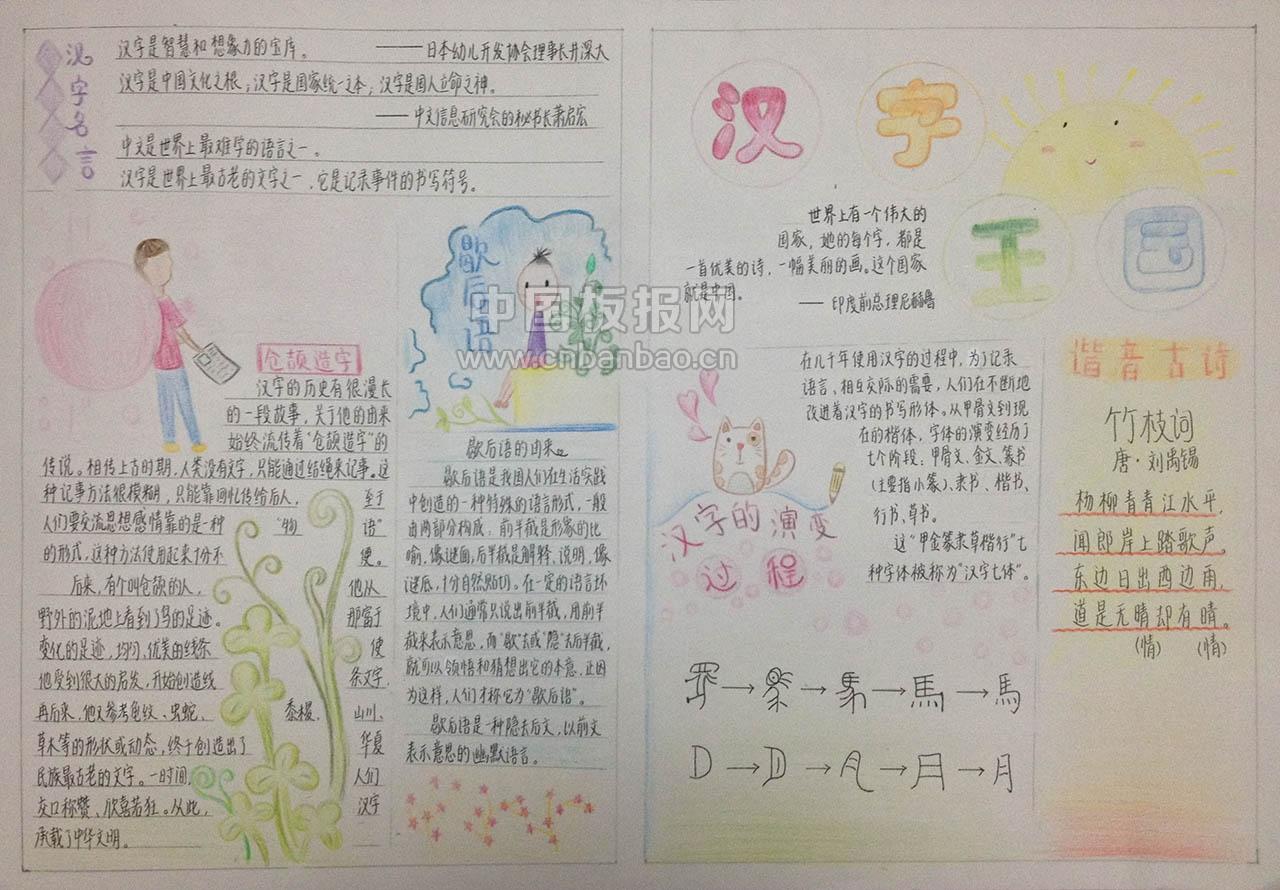 汉字名言
汉字是智慧和想象力的宝库。
——日本幼儿开发协会理事长井深大
汉字是中国文化之根；汉字是国家统一之本；汉字是国人立命之神。
——中文信息研究会的秘书长萧启宏
中文是世界上最难学的语言之一。
汉字是世界上最古老的文字之一，它是记录事件的书写符号。
仓颉造字
汉字的历史有很漫长
的一段故事，关于他的由来
始终流传着“仓颉造字”的
传说。相传上古时期，人类没有文字，只能通过结绳来记事。这
种记事方法很模糊，只能靠回忆传给后人，至于
人们要交流思想感情靠的是一种“物语”
的形式，这种方法使用起来十分不便。
后来，有个叫仓颉的人，他从
野外的泥地上看到了鸟的足迹。那富于
变化的足迹，均匀、优美的线条使
他受到很大的启发，开始创造线条文字，
再后来，他又参考龟纹、虫蛇、黍稷、山川、
草木等的形状或动态，终于创造出了华夏
民族最古老的文字。一时间，人们
交口称赞、欣喜若狂。从此，汉字
承载了中华文明。
歇后语
歇后语的由来。
歇后语是我国人们在生活实践
中创造的一种特殊的语言形式，一般
由两部分构成：前半截是形象的比
喻，像谜面，后半截是解释、说明，像
谜底，十分自然贴切。在一定的语言环
境中，人们通常只说出前半截，用前半
截来表示意思，而“歇”去或“隐”去后半截，
就可以领悟和猜想出它的本意，正因
为这样，人们才称它为“歇后语”。
歇后语是一种隐去后文，以前文
表示意思的幽默语言。
汉字
王国
世界上有一个伟大的
国家，她的每个字，都是
一首优美的诗，一幅美丽的画。这个国家
就是中国。
——印度前总理尼赫鲁
汉字的演变
过程
在几千年使用汉字的过程中，为了记录
语言、相互交际的需要，人们在不断地
改进着汉字的书写形体。从甲骨文到现
在的楷体，字体的演变经历了
七个阶段：甲骨文、金文、篆书
（主要指小篆）、隶书、楷书、
行书、草书。
这“甲金篆隶草楷行”七
种字体被称为“汉字七体”。
→→馬→馬→馬
→→→月→月
谐音古诗
竹枝词
唐·刘禹锡
杨柳青青江水平，
闻郎岸上踏歌声。
东边日出西边雨，
道是无晴却有晴。
（情）（情）
中国板报网
www.cnbanbao.cn